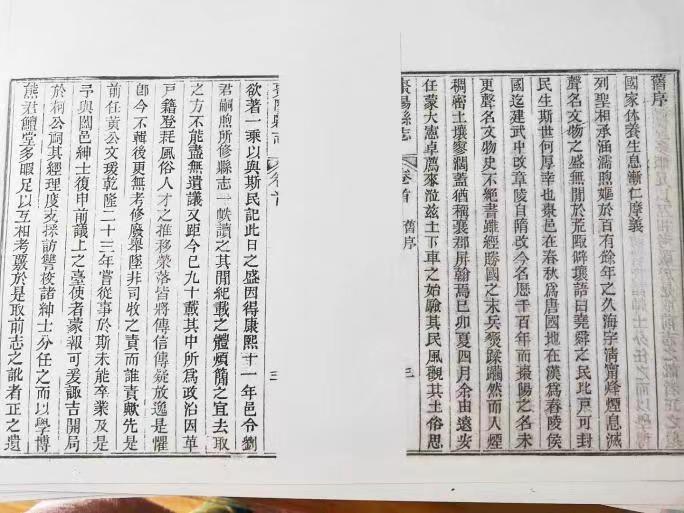 舊序
國家休養生息漸仁摩義
列聖相承涵濡煦嫗於百有餘年之久海宇清甯烽煙息滅
聲名文物之盛無間於荒陬僻壤語曰堯舜之民比戸可封
民生斯世何厚幸也棗邑在春秋爲唐國地在漢爲舂陵侯
國迄建武中改章陵自隋改今名歷千百年而棗陽之名未
更聲名文物史不絶書雖經勝國之末兵燹蹂躪然而人煙
稠密土壤寥濶蓋猶稱襄郡屏翰焉已卯夏四月余由遠安
任蒙大憲卓薦來涖兹土下車之始驗其民風觀其土俗思
棗陽縣志
卷首
舊序
三
欲著一乘以與斯民記此日之盛因得康熙十一年邑令劉
君嗣煦所修縣志一帙讀之其間紀載之體煩簡之宜去取
之方不能盡無遺議又距今已九十載其中所爲政治因革
戸籍登耗風俗人才之推移榮落皆將傳信傳疑放逸是懼
卽今不輯後更無考修廢舉墜非司牧之責而誰責歟先是
前任黃公文瑗乾隆二十三年嘗從事於斯未能卒業及是
予與闔邑紳士復申前議上之臺使者蒙報可爰諏吉開局
於桐公詞其經理度支採訪讐校諸紳士分任之而以學博
熊君饘堂多暇足以互相考覈於是取前志之訛者正之遺
三